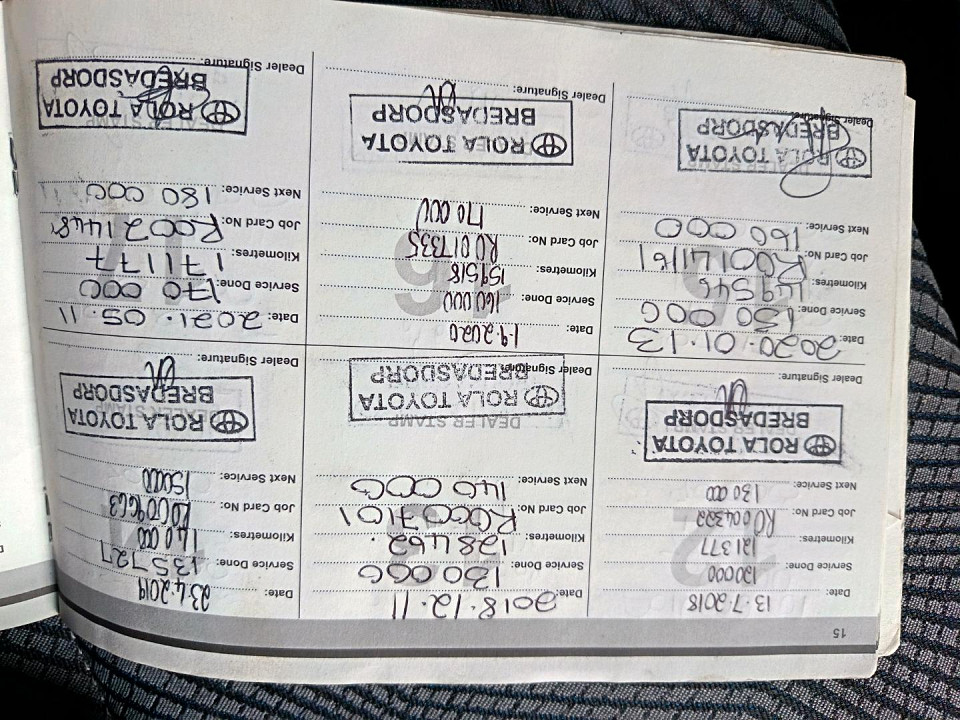 15
Date: 13.7.2018
Service Done: 120000
Kilometres: 121377
Job Card No: R0004322
Next Service: 130 000
DEALER STAMP
ROLA TOYOTA
BREDASDORP
Dealer Signature:
Date: 2018.12.11
Service Done: 130 000
Kilometres: 128462.
Job Card No: R0007101
Next Service: 140 000
DEALER STAMP
ROLA TOYOTA
BREDASDORP
Dealer Signature:
Date: 23.4.2019
Service Done: 135727
Kilometres: 140 000
Job Card No: R0009663
Next Service: 15000
DEALER STAMP
ROLA TOYOTA
BREDASDORP
Dealer Signature:
Date: 2020.01.13
Service Done: 150 000
Kilometres: 149546
Job Card No: R0014161
Next Service: 160 000
DEALER STAMP
ROLA TOYOTA
BREDASDORP
Dealer Signature:
Date: 1.9.2020
Service Done: 160 000
Kilometres: 159518
Job Card No: R0017335
Next Service: 170 000
ROLA TOYOTA
BREDASDORP
Dealer Signature:
Date: 2021.05.11
Service Done: 170 000
Kilometres: 171177
Job Card No: R0021448
Next Service: 180 000
DEALER STAMP
ROLA TOYOTA
BREDASDORP
Dealer Signature: